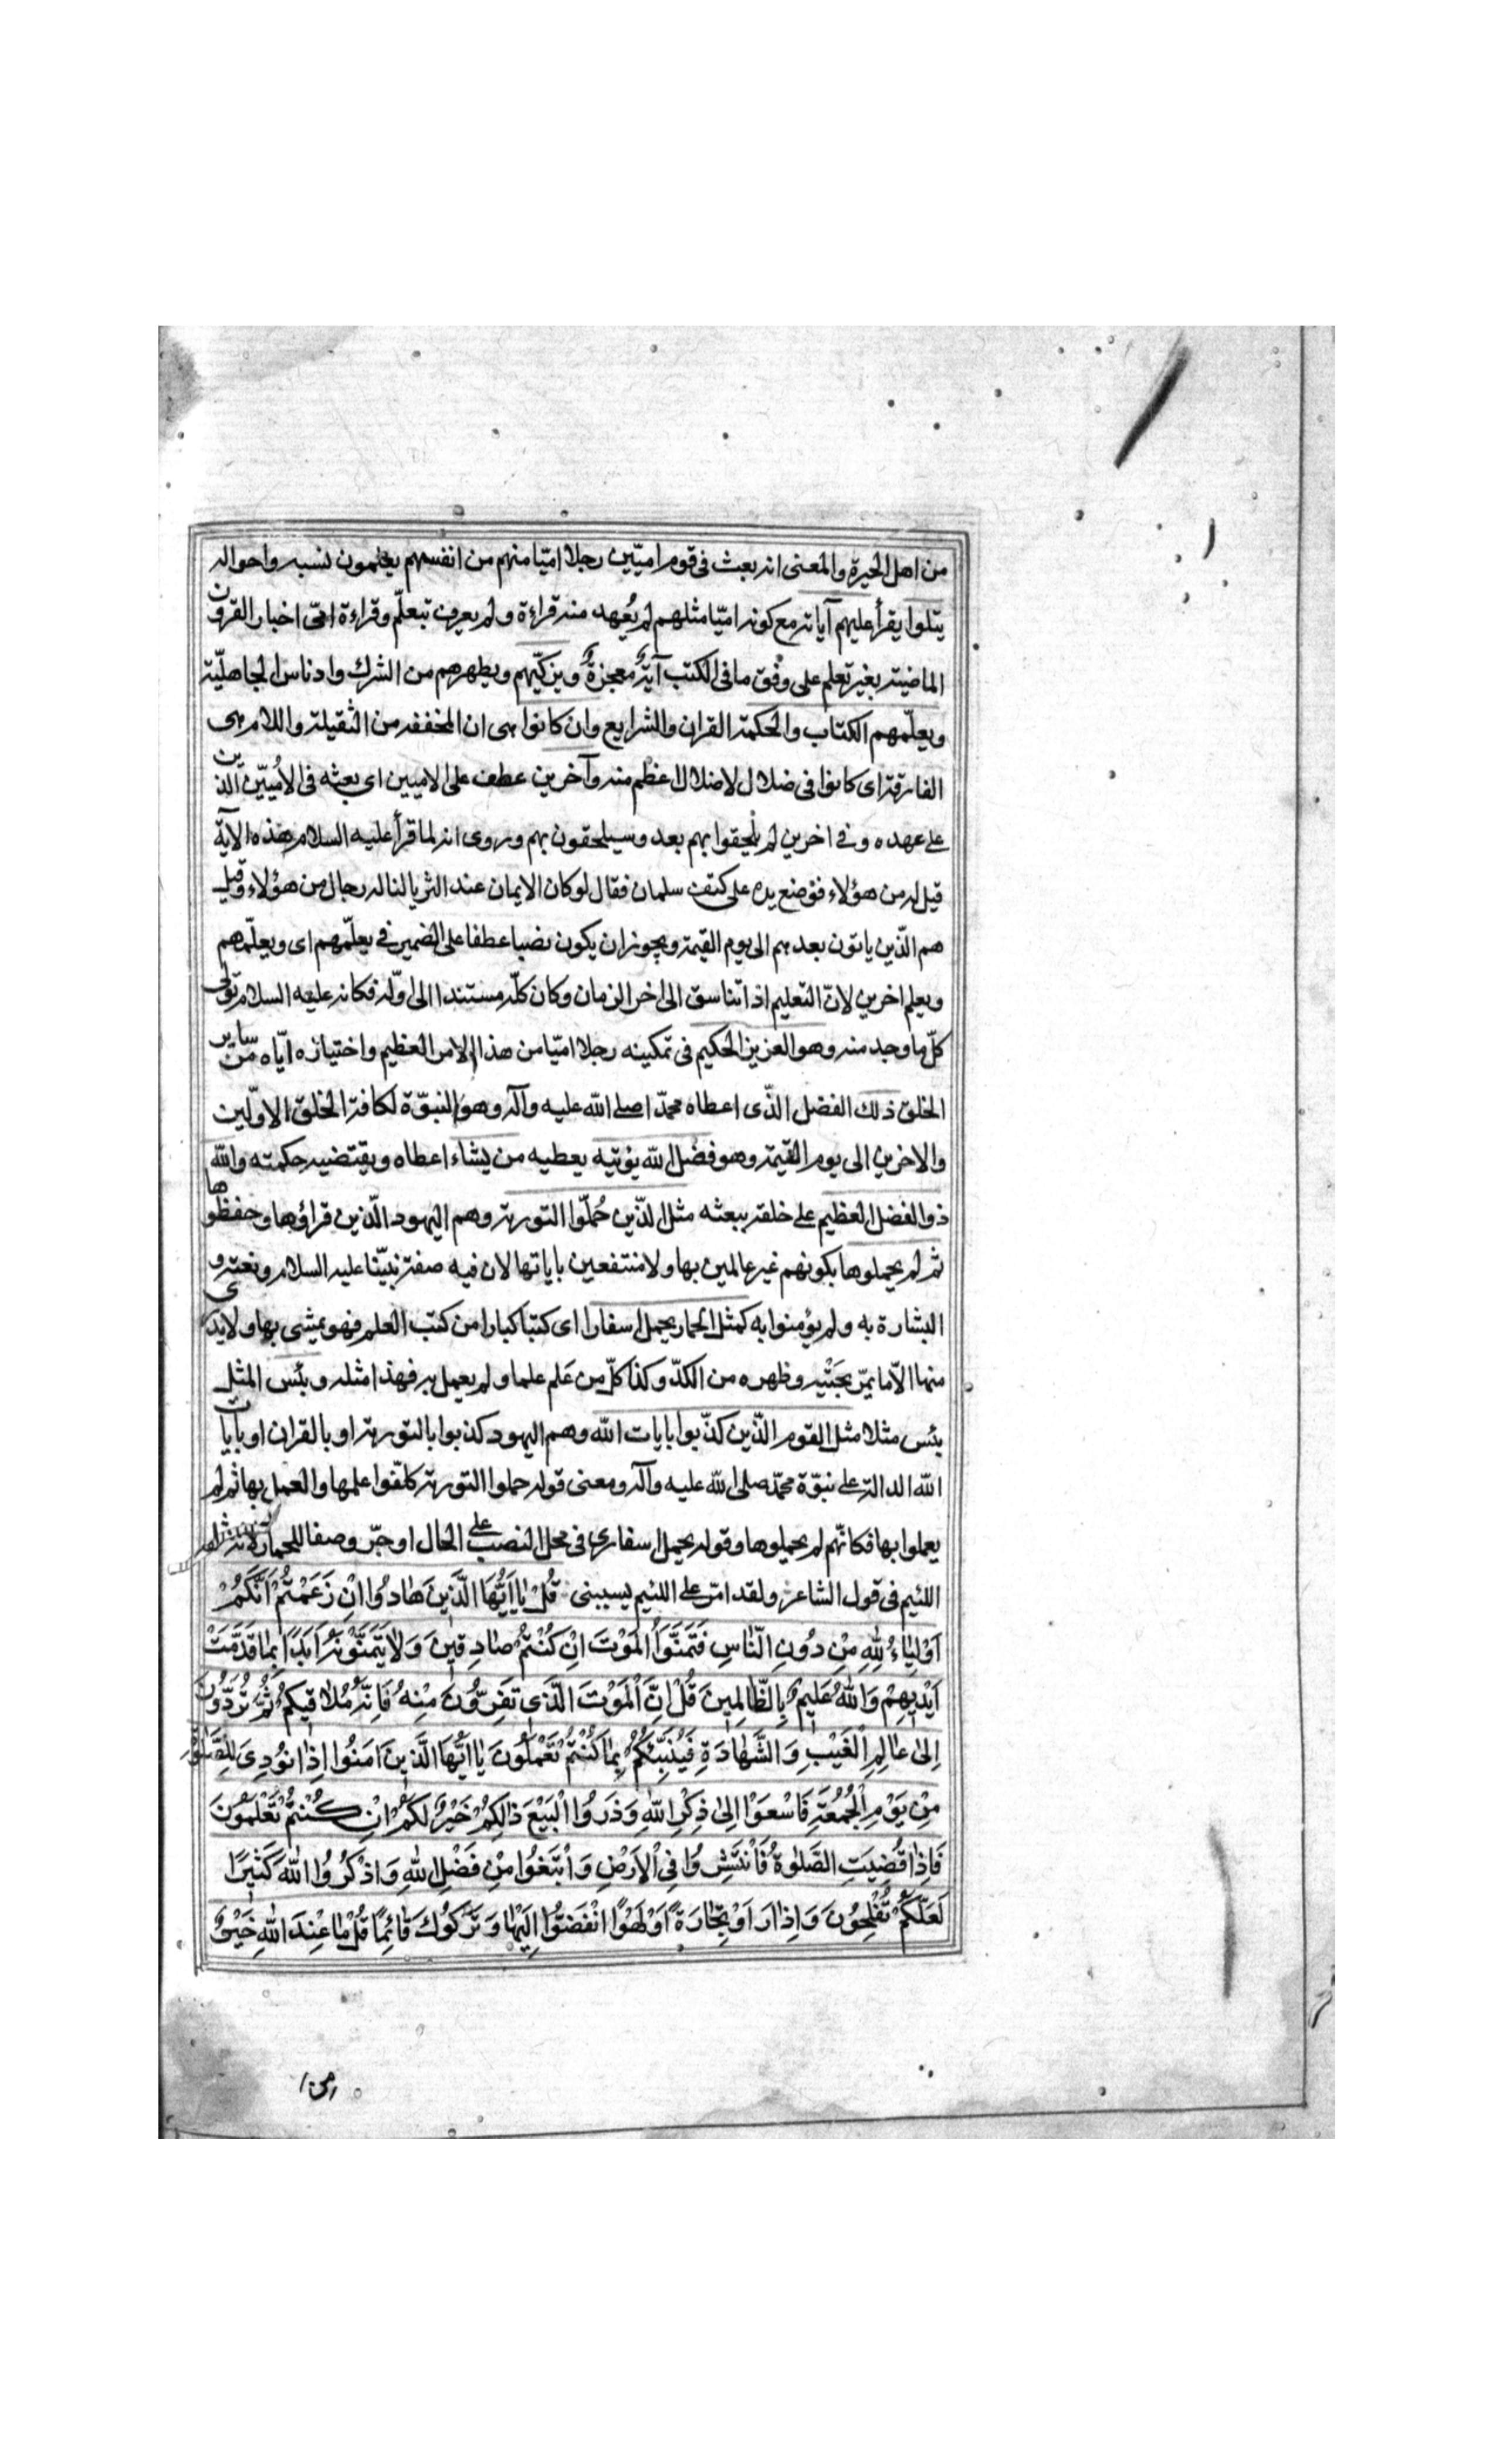 من اهل الحيرة والمعنى انه بعث فى قوم اميّين رجلا امّيّا منهم من انفسهم يعلمون نسبه واحواله
يتلوا يقرأ عليهم آياته مع كونه امّيّا مثلهم لم يُعهد منه قراءة ولم يعرف بتعلّم وقراءة امّى اخبار القرون
الماضية بغير تعلم على وفق ما فى الكتب آيةٌ معجزةٌ ويزكّيهم ويطهرهم من الشرك وادناس الجاهليّة
ويعلّمهم الكتاب والحكمة القران والشرايع وان كانوا هى ان المخففة من الثقيلة واللام هى
الفارقة اى كانوا فى ضلال لا ضلال اعظم منه وآخرين عطف على الاميين اى بعثه فى الاُميّين الّذين
على عهده وفى اخرين لم يلحقوا بهم بعد وسيلحقون بهم وروى انه لما قرأ عليه السلام هذه الآية
قيل له من هؤلاء فوضع يده على كتف سلمان فقال لو كان الايمان عند الثريا لناله رجال من هؤلاء وقيل
هم الّذين ياتون بعدهم الى يوم القيمة ويجوز ان يكون نصبا عطفا على الضمير فى يعلّمهم اى ويعلّمهم
ويعلم اخرين لانّ التعليم اذا تناسق الى اخر الزمان وكان كلّه مستندا الى اوّله فكانه عليه السلام تولّى
كلّ ما وجد منه وهو العزيز الحكيم فى تمكينه رجلا امّيّا من هذا الامر العظيم واختياره ايّاه من ساير
الخلق ذلك الفضل الّذى اعطاه محمّدا صلى الله عليه وآله وهو النبوّة لكافة الخلق الاوّلين
والاخرين الى يوم القيمة وهو فضل الله يؤتيه يعطيه من يشاء اعطاه ويقتضيه حكمته والله
ذوالفضل العظيم على خلقه ببعثه مثل الذّين حُمّلوا التورية وهم اليهود الّذين قراؤها وحفظوها
ثم لم يحملوها بكونهم غير عالمين بها ولا منتفعين باياتها لان فيه صفة نبيّنا عليه السلام ونعته و
البشارة به ولم يؤمنوا به كمثل الحمار يحمل اسفارا اى كتبا كبارا من كتب العلم فهو يمشى بها ولا يدرى
منها الّا ما يمّر بجَنْبيه وظهره من الكدّ وكذا كلّ من عَلم علما ولم يعمل به فهذا مثله وبئس المثل
بئس مثلا مثل القوم الّذين كذّبوا بايات الله وهم اليهود كذبوا بالتورية او بالقران او بآيات
الله الدالة على نبوّة محمّد صلى الله عليه وآله ومعنى قوله حملوا التورية كلّفوا علمها والعمل بها ثم لم
يعملوا بها فكانّهم لم يحملوها وقوله يحمل اسفارا فى محل النصب على الحال او جرّ وصفا للحمار لانه مثل
اللئيم فى قول الشاعر ولقد امرّ على اللئيم يسبنى قُلْ يٰا اَيُّهَا الَّذِينَ هٰادُوا اِنْ زَعَمْتُمْ اَنَّكُمْ
اَوْلِيٰاءُ لِلّٰهِ مِنْ دُونِ النّٰاسِ فَتَمَنَّوُا الْمَوْتَ اِنْ كُنْتُمْ صٰادِقِينَ وَلٰا يَتَمَنَّوْنَهُ اَبَدًا بِمٰا قَدَّمَتْ
اَيْدِيهِمْ وَاللهُ عَلِيمٌ بِالظّٰالِمِينَ قُلْ اِنَّ الْمَوْتَ الَّذِى تَفِرُّونَ مِنْهُ فَاِنَّهُ مُلٰاقِيكُمْ ثُمَّ تُرَدُّونَ
اِلٰى عٰالِمِ الْغَيْبِ وَالشَّهٰادَةِ فَيُنَبِّئُكُمْ بِمٰا كُنْتُمْ تَعْمَلُونَ يٰا اَيُّهَا الَّذِينَ اٰمَنُوا اِذٰا نُودِىَ لِلصَّلٰوةِ
مِنْ يَوْمِ الْجُمُعَةِ فَاسْعَوْا اِلٰى ذِكْرِ اللهِ وَذَرُوا الْبَيْعَ ذٰلِكُمْ خَيْرٌ لَكُمْ اِنْ كُنْتُمْ تَعْلَمُونَ
فَاِذٰا قُضِيَتِ الصَّلٰوةُ فَانْتَشِرُوا فِى الْاَرْضِ وَابْتَغُوا مِنْ فَضْلِ اللهِ وَاذْكُرُوا اللهَ كَثِيرًا
لَعَلَّكُمْ تُفْلِحُونَ وَاِذٰا رَاَوْ تِجٰارَةً اَوْ لَهْوًا انْفَضُّوا اِلَيْهٰا وَتَرَكُوكَ قٰائِمًا قُلْ مٰا عِنْدَ اللهِ خَيْرٌ